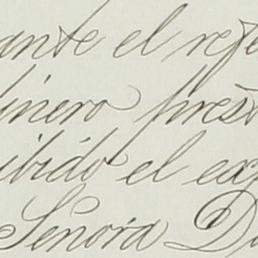 ante el refe
dinero prest
ibido el exp
Senora D